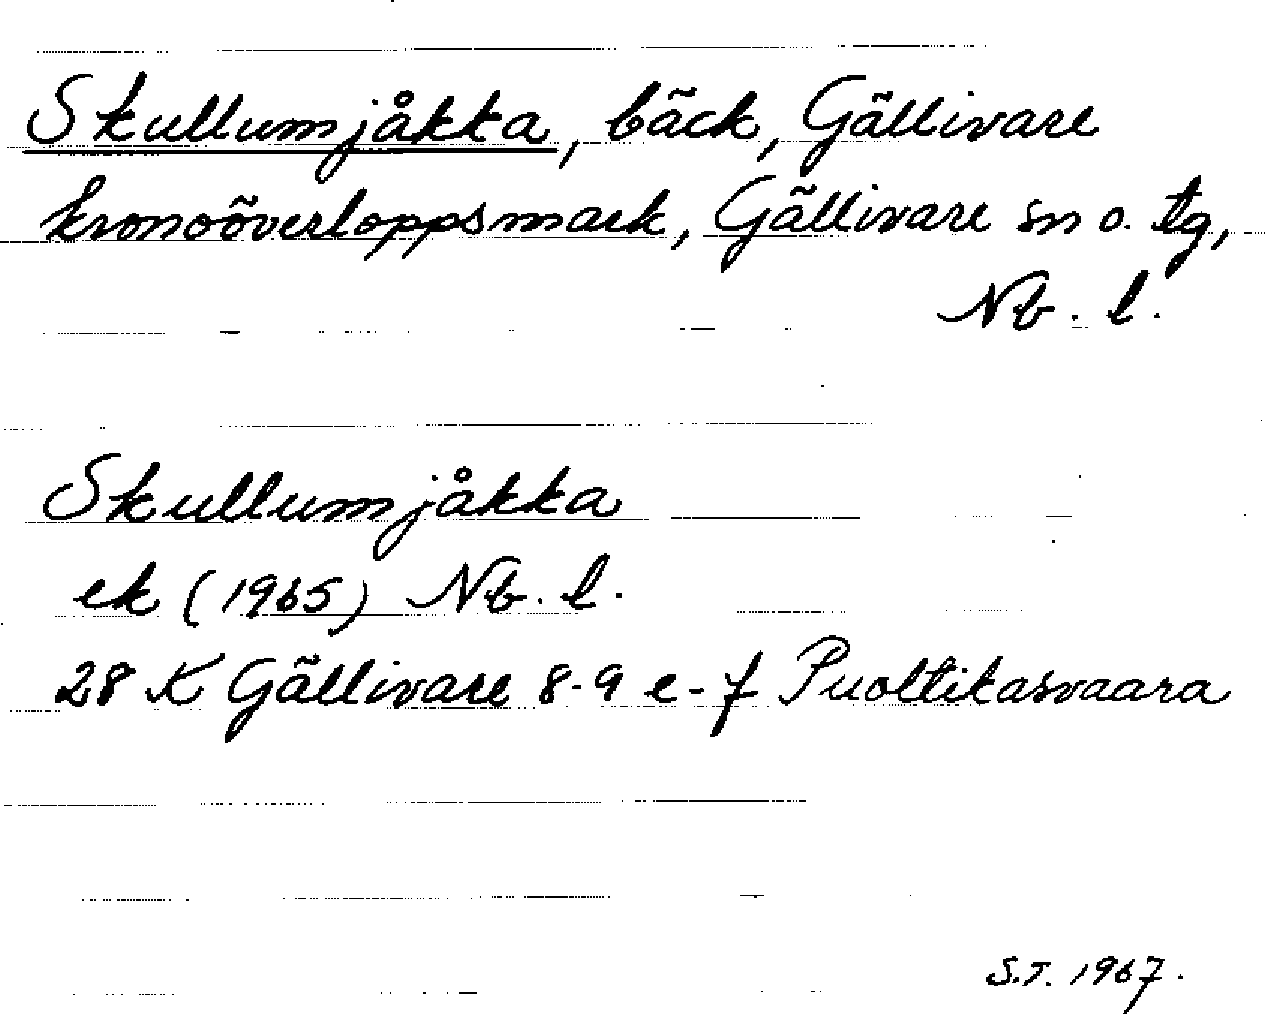 Skullumjåkka, bäck, Gällivare
kronoöverloppsmark, Gällivare sn o. tg,
Nb. l.
Skullumjåkka
ek (1965) Nb. l.
28 K Gällivare 8-9 e-f Puoltikasvaara
S.T. 1967.